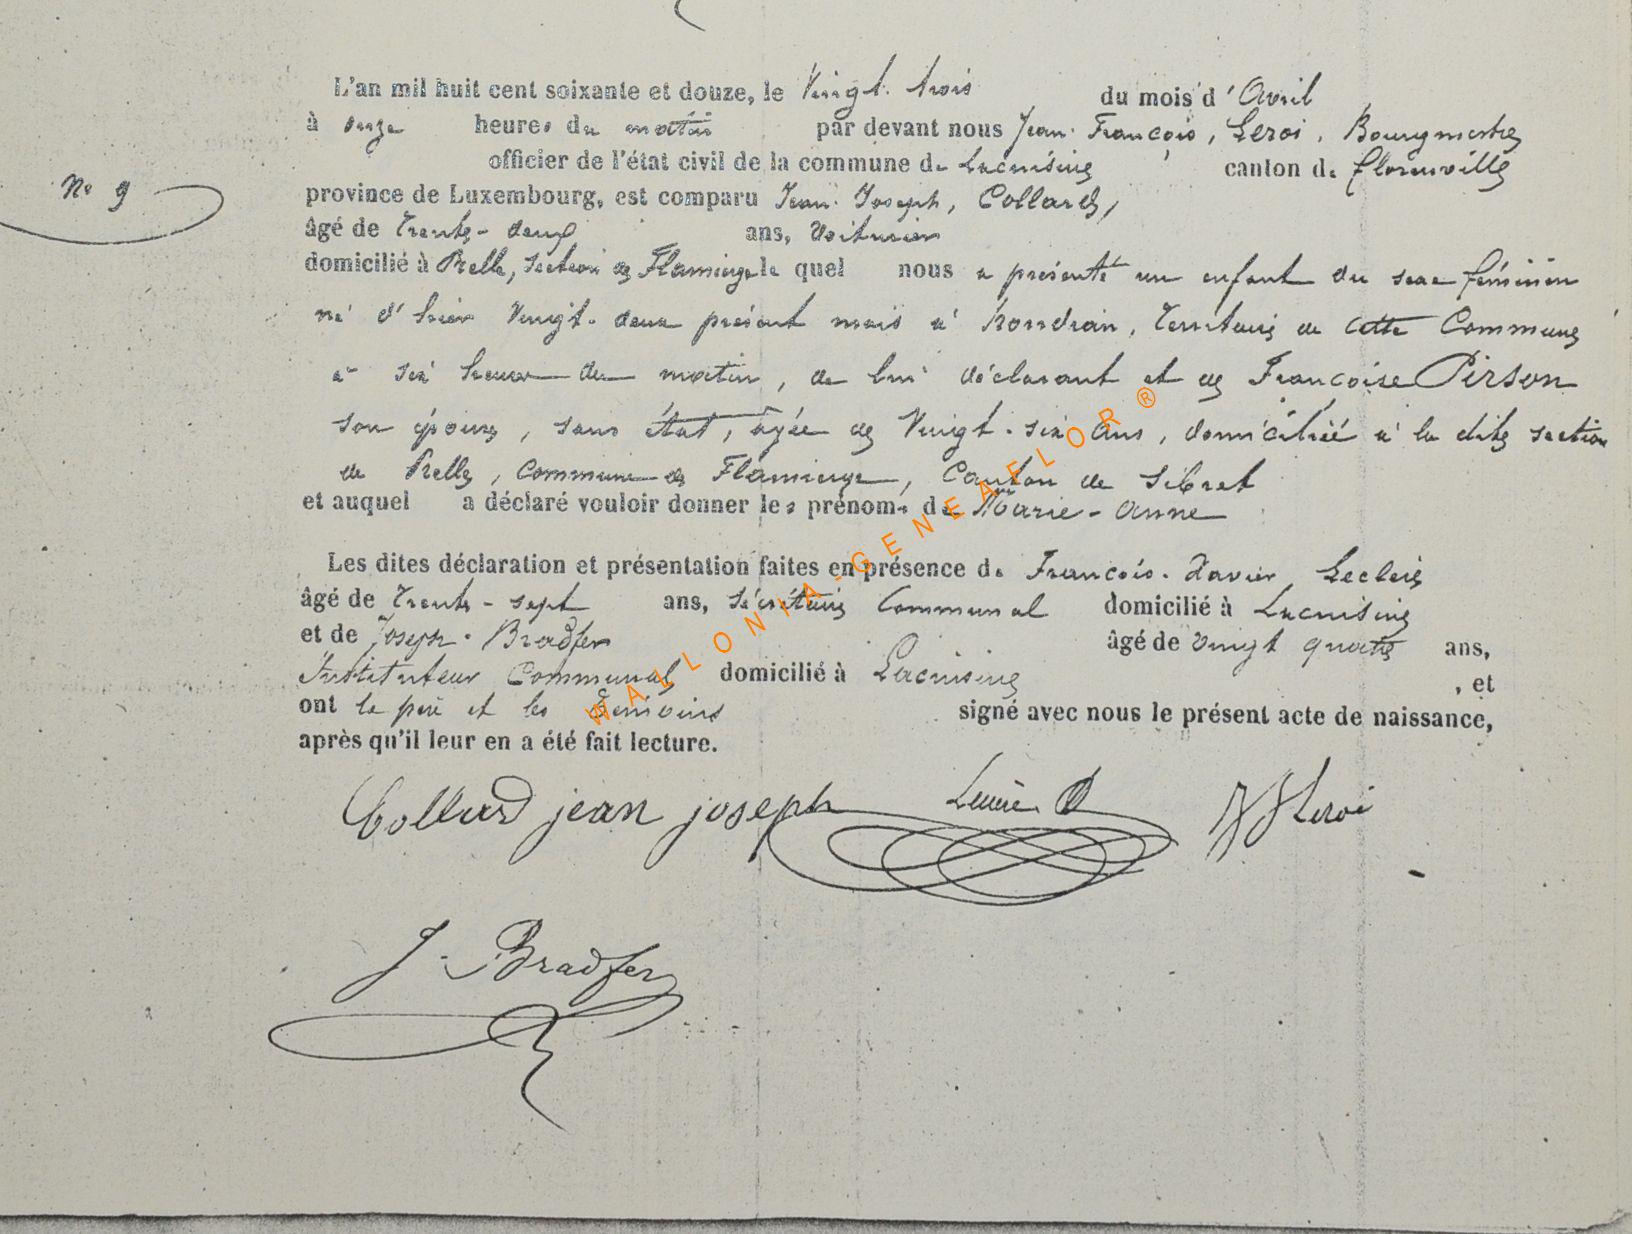 L'an mil huit cent soixante et douze, le Vingt-trois du mois d'Avril
à onze heures du matin par devant nous Jean-François, Leroi, Bourgmestre
officier de l'état civil de la commune de Lacuisine canton de Florenville
N° 9
province de Luxembourg, est comparu Jean-Joseph, Collard,
âgé de Trente-deux ans, Voiturier
domicilié à Prelle, section de Flamierge le quel nous a présenté un enfant du sexe féminin
né d'hier Vingt-deux présent mois à territoire de cette Commune
à six heures du matin, de lui déclarant et de Françoise Pirson
son épouse, sans état, agée de Vingt-six ans, domiciliée à la dite section
de Prelle, commune de Flamierge, Canton de Sibret
et auquel a déclaré vouloir donner les prénoms de Marie-Anne
Les dites déclaration et présentation faites en présence de François-Xavier Leclerc
âgé de Trente-sept ans, secrétaire Communal domicilié à Lacuisine
et de Joseph-Bradfer âgé de vingt quatre ans,
Instituteur Communal domicilié à Lacuisine , et
ont le père et les témoins signé avec nous le présent acte de naissance,
après qu'il leur en a été fait lecture.
Collard jean joseph Leroi
J. Bradfer
WALLONIA-GENEAFLOR ®